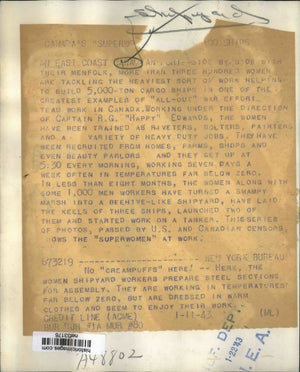 CANADA'S "SUPERWOMEN" CARGO SHIPS
AN EAST COAST CANADIAN PORT--SIDE BY SIDE WITH
THEIR MENFOLK, MORE THAN THREE HUNDRED WOMEN
ARE TACKLING THE HEAVIEST SORT OF WORK HELPING
TO BUILD 5,000-TON CARGO SHIPS IN ONE OF THE
GREATEST EXAMPLES OF "ALL-OUT" WAR EFFORT
TEAM WORK IN CANADA. WORKING UNDER THE DIRECTION
OF CAPTAIN R.G. "HAPPY" EDWARDS, THE WOMEN
HAVE BEEN TRAINED AS RIVETERS, BOLTERS, PAINTERS
AND A VARIETY OF HEAVY DUTY JOBS. THEY HAVE
BEEN RECRUITED FROM HOMES, FARMS, SHOPS AND
EVEN BEAUTY PARLORS AND THEY GET UP AT
5:30 EVERY MORNING, WORKING SEVEN DAYS A
WEEK OFTEN IN TEMPERATURES FAR BELOW ZERO.
IN LESS THAN EIGHT MONTHS, THE WOMEN ALONG WITH
SOME 1,000 MEN WORKERS HAVE TURNED A SWAMPY
MARSH INTO A BEEHIVE-LIKE SHIPYARD, HAVE LAID
THE KEELS OF THREE SHIPS, LAUNCHED TWO OF
THEM AND STARTED WORK ON A TANKER. THIS SERIES
OF PHOTOS, PASSED BY U.S. AND CANADIAN CENSORS,
SHOWS THE "SUPERWOMEN" AT WORK.
673219 NEW YORK BUREAU
NO "CREAMPUFFS" HERE! -- HERE, THE
WOMEN SHIPYARD WORKERS PREPARE STEEL SECTIONS
FOR ASSEMBLY. THEY ARE WORKING IN TEMPERATURES
FAR BELOW ZERO, BUT ARE DRESSED IN WARM
CLOTHES AND SEEM TO ENJOY THEIR WORK.
CREDIT LINE (ACME) 1-11-43 (ML)
historicimages.com
A48802
REF. DEPT.
1-22-43
N.E.A.